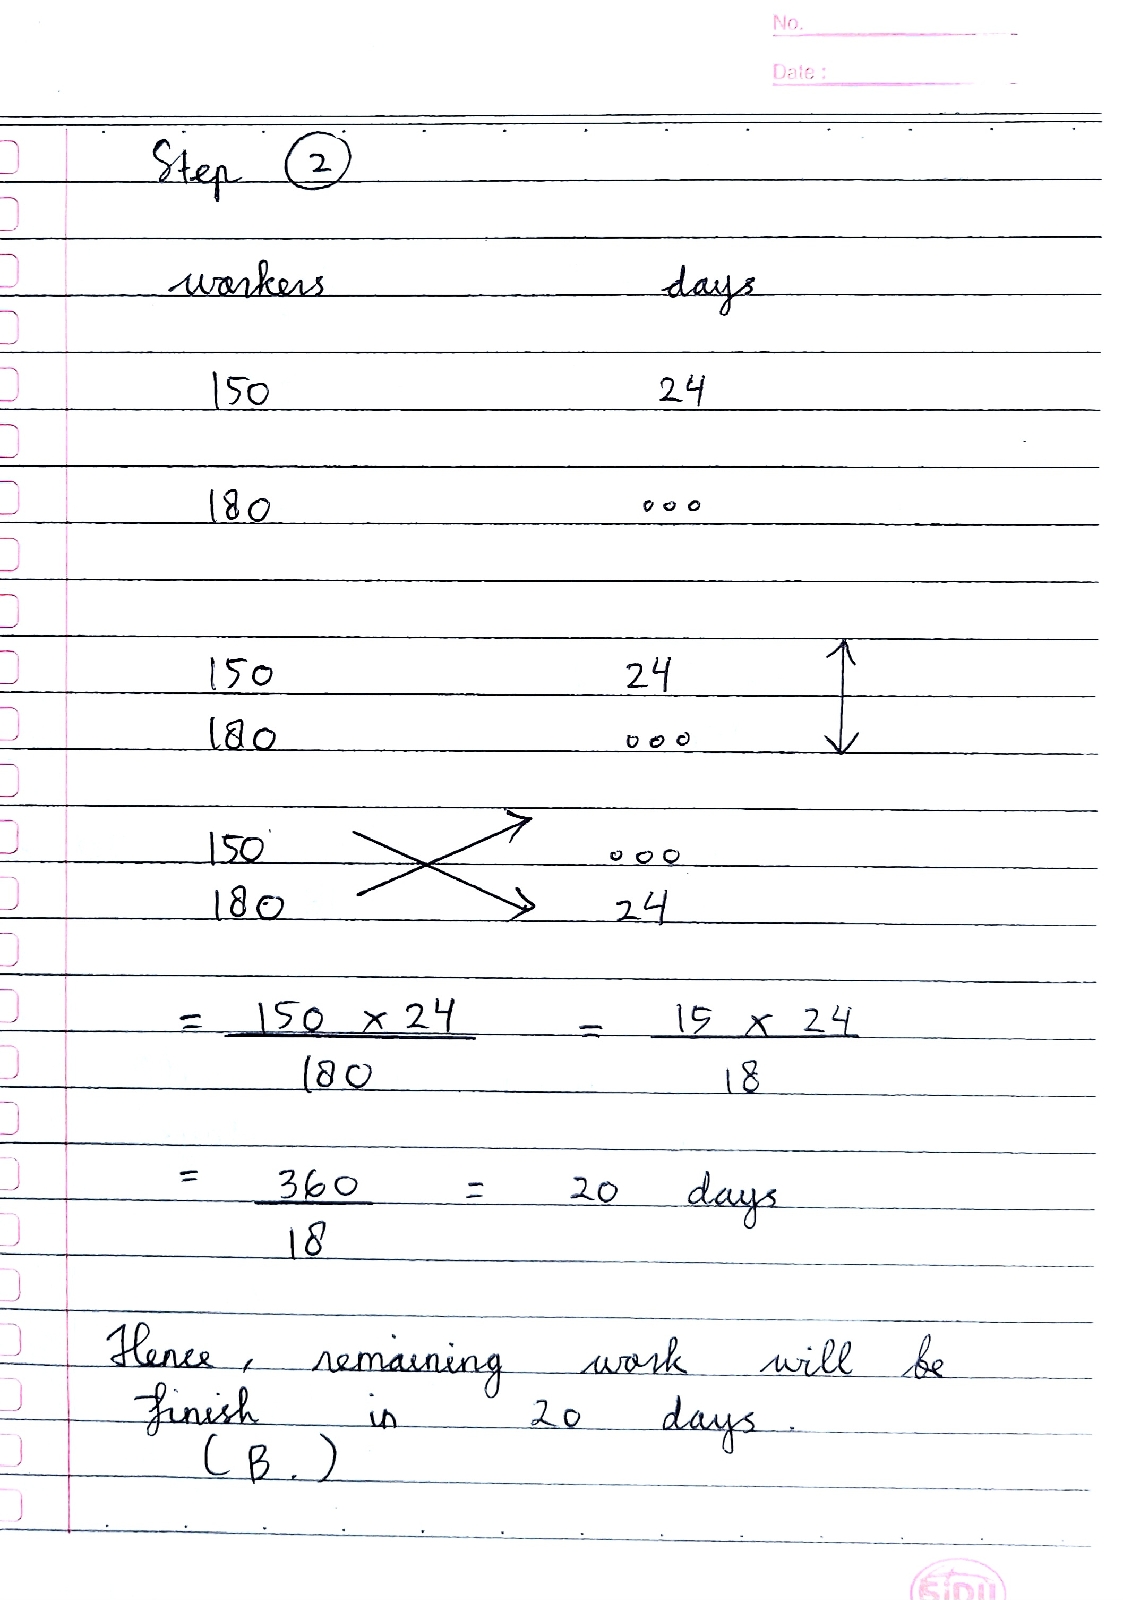 No.
Date :
Step 2
workers days
150 24
180 ooo
150 24
180 ooo
150 ooo
180 24
= 150 x 24 = 15 x 24
180 18
= 360 = 20 days
18
Hence, remaining work will be
finish in 20 days.
(B.)